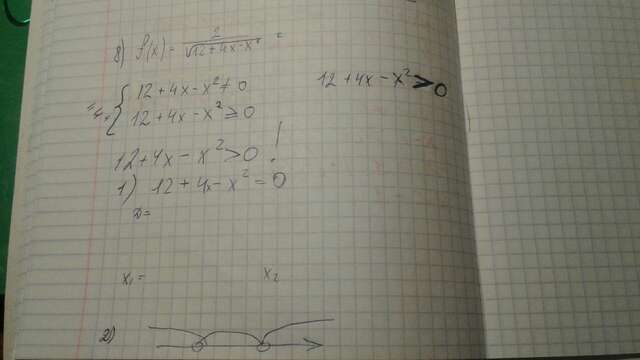 8) f(x) = 2/√(12+4x-x²) =
{ 12+4x-x² ≠ 0
12+4x-x² ≥ 0
12+4x-x² > 0
12+4x-x² > 0 !
1) 12+4x-x² = 0
D=
x₁ = x₂
2)